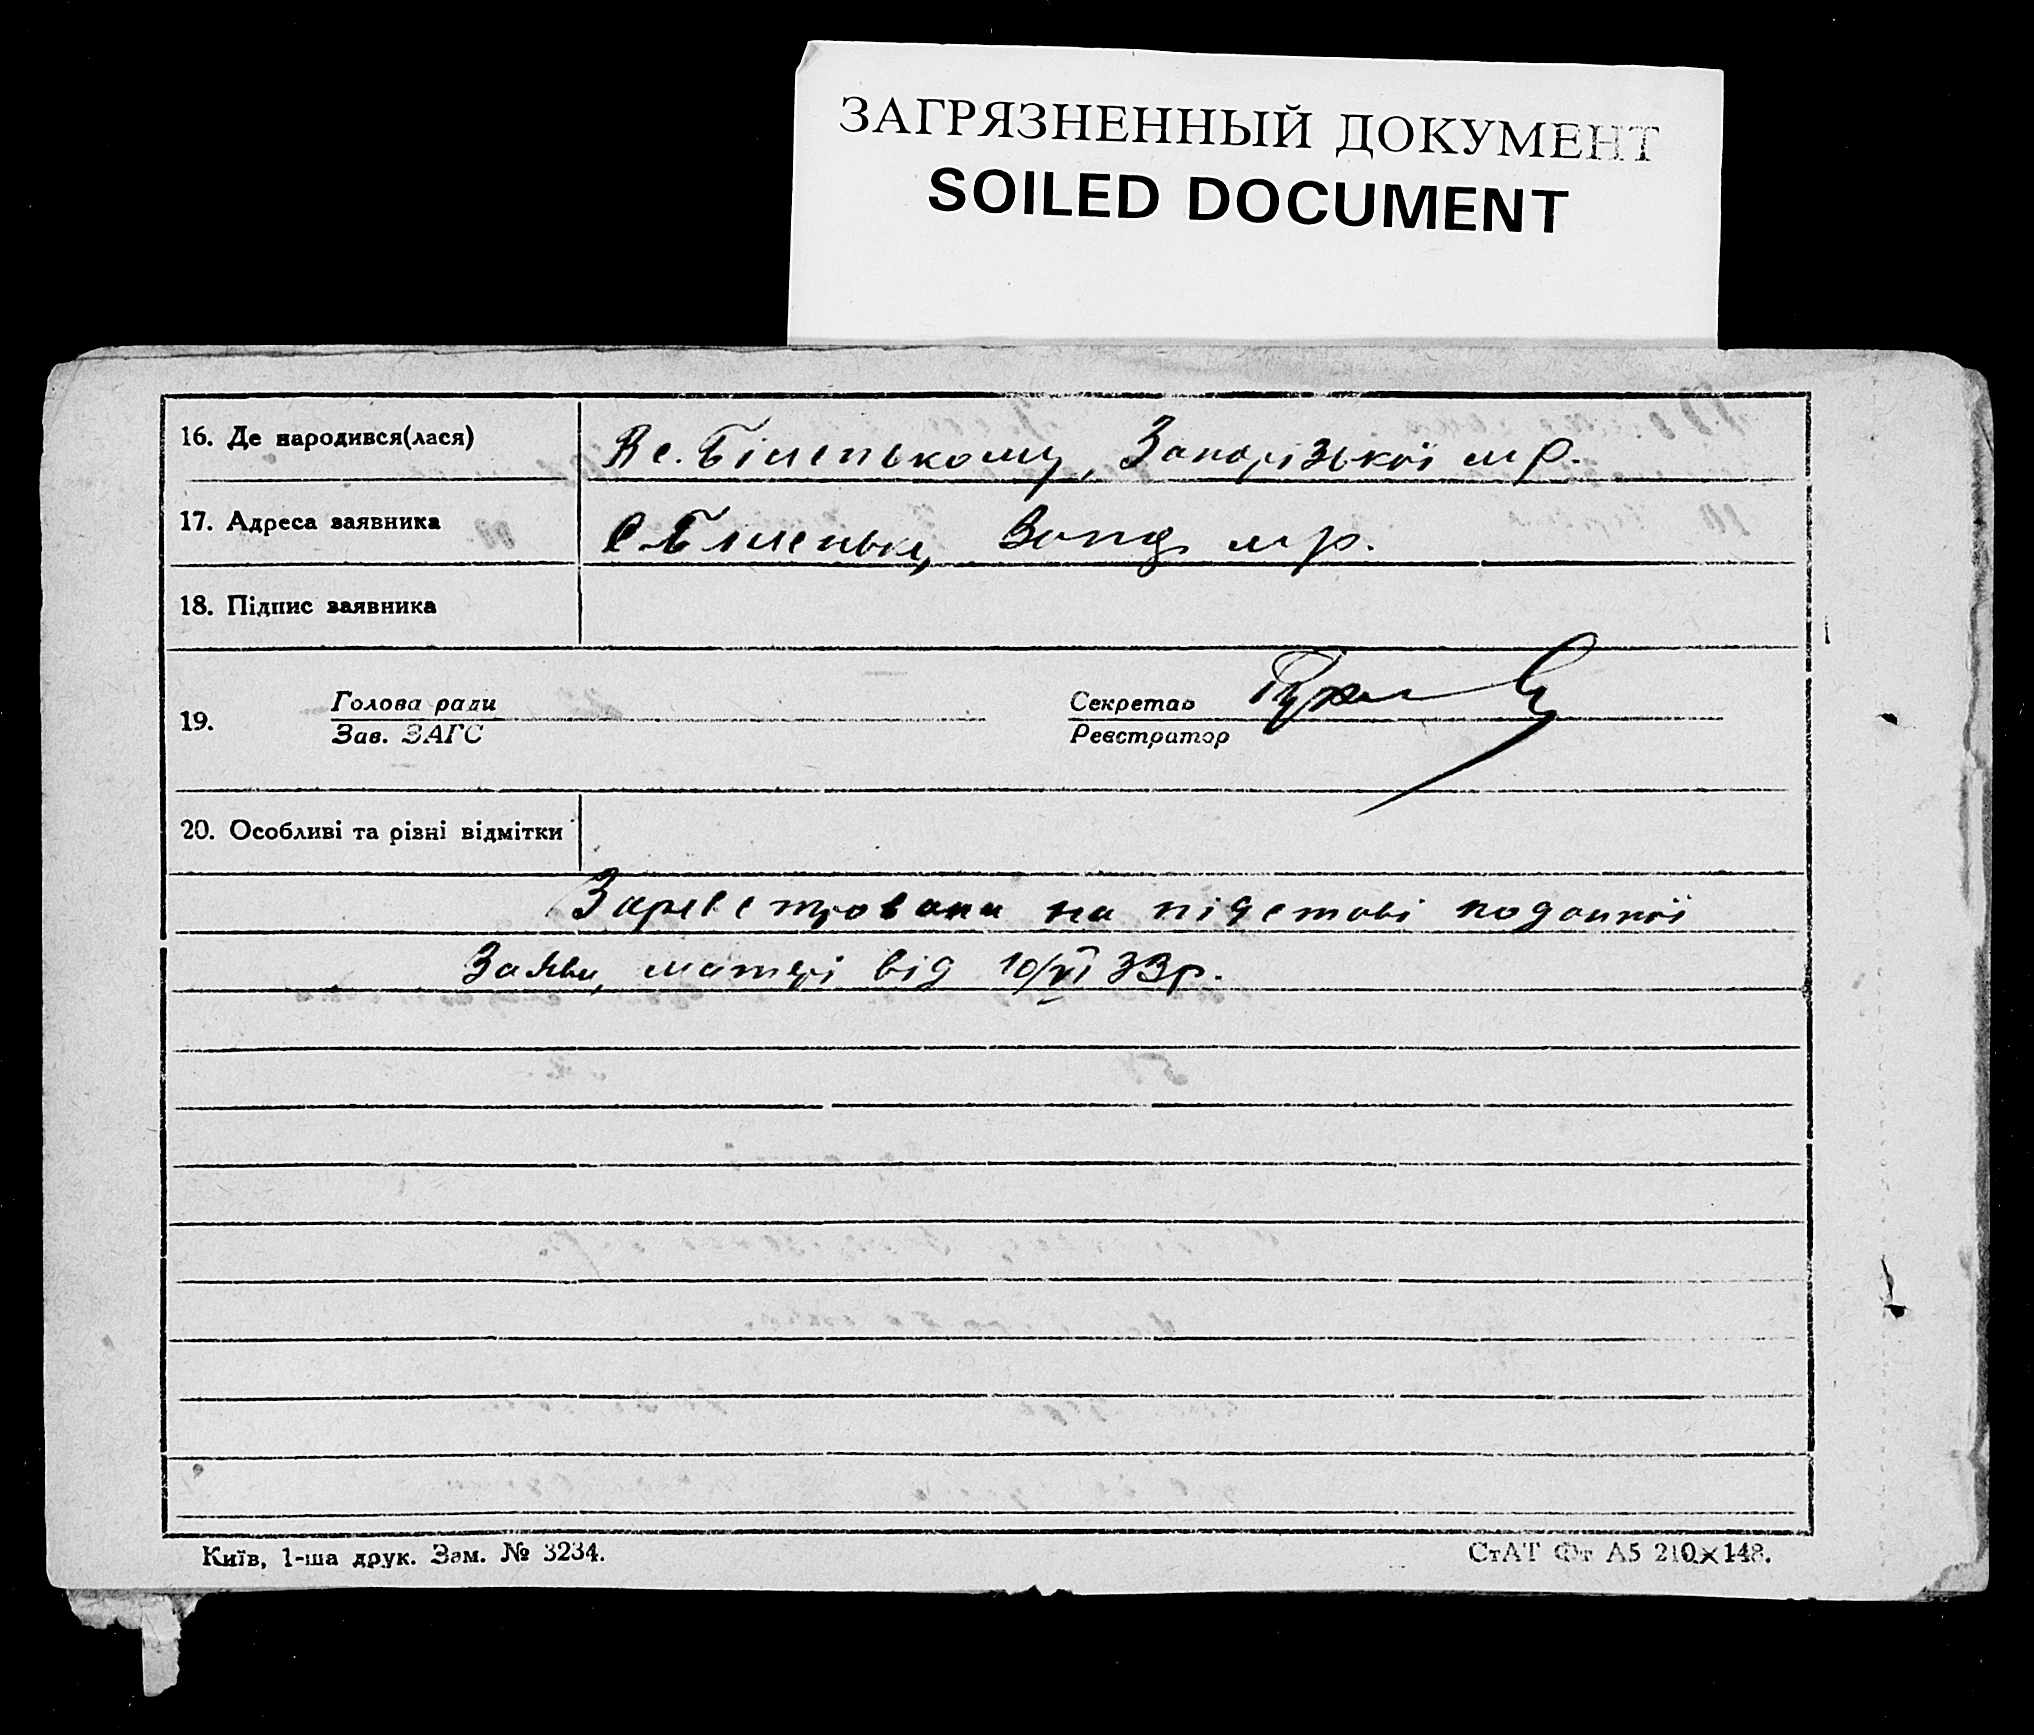 ЗАГРЯЗНЕННЫЙ ДОКУМЕНТ
SOILED DOCUMENT
16. Де народився(лася) В с. Біленькому, Запорізької м р.
17. Адреса заявника с. Біленьке, м р.
18. Підпис заявника
19. Голова ради Секретар
Зав. ЗАГС Реєстратор
20. Особливі та різні відмітки
Зареєстрована на підставі поданої
Заяви, матері від 10/VI 33 р.
Київ, 1-ша друк. Зам. № 3234. СтАТ Фт А5 210×148.